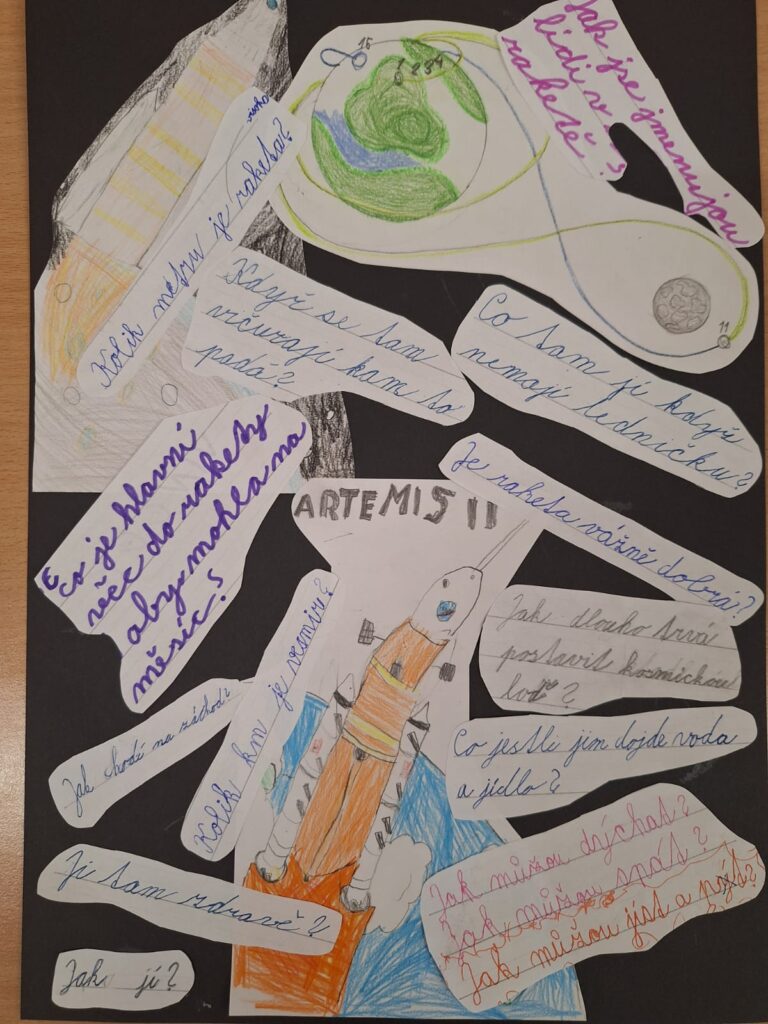 Jak se jmenujou
lidi v
raketě?
15
1 2 3 4
11
vysoká
Kolik metru je raketa?
Když se tam
vrčurají kam to
padá?
Co tam jí když
nemají ledničku?
Co je hlavní
věc do rakety
aby mohla na
měsíc?
ARTEMIS II
Je raketa vážně dobrá?
Jak dlouho trvá
postavit kosmickou
loď?
Kolik km je vesmire?
Jak chodí na záchod?
Co jestli jim dojde voda
a jídlo?
Jí tam zdravě?
Jak můžou dýchat?
Jak můžou spát?
Jak můžou jíst a pít?
Jak jí?